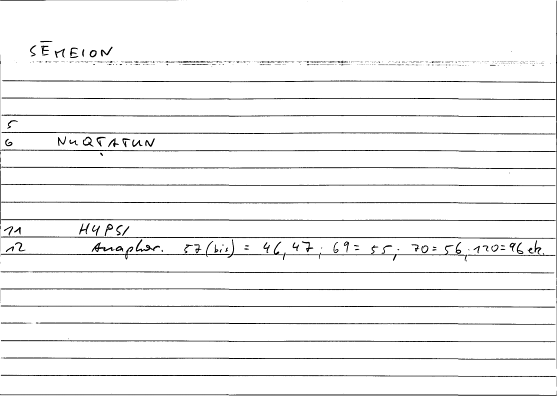 SĒMEION
5
6 NUQṬATUN
11 HYPSI
12 Anaphor. 57 (bis) = 46, 47; 69 = 55; 70 = 56, 120 = 96 ck.